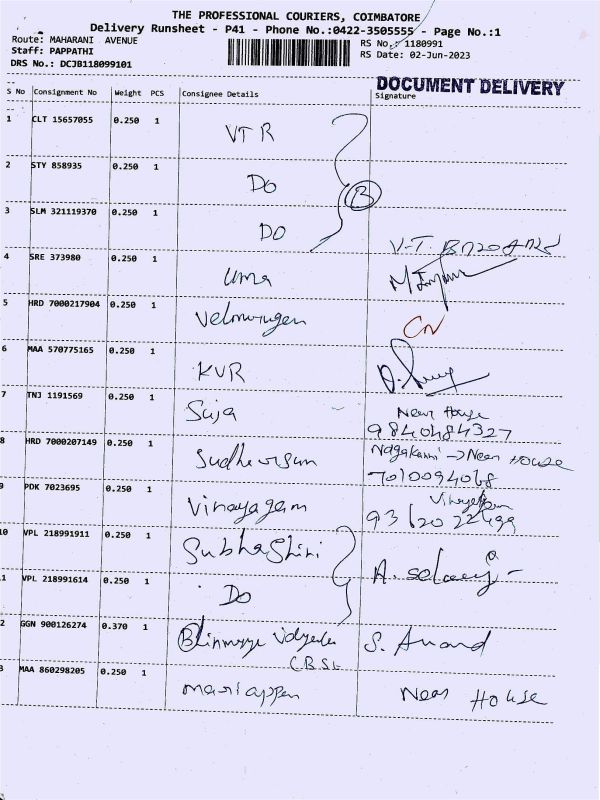 THE PROFESSIONAL COURIERS, COIMBATORE
Delivery Runsheet - P41 - Phone No.:0422-3505555 - Page No.:1
Route: MAHARANI AVENUE
RS No.: 1180991
Staff: PAPPATHI
RS Date: 02-Jun-2023
DRS No.: DCJB118099101
DOCUMENT DELIVERY
S No Consignment No Weight PCS Consignee Details Signature
1 CLT 15657055 0.250 1 VTR
2 STY 858935 0.250 1 Do
B
3 SLM 321119370 0.250 1 Do
V-T.
4 SRE 373980 0.250 1 Uma
5 HRD 7000217904 0.250 1 Velmurugan
6 MAA 570775165 0.250 1 KVR
7 TNJ 1191569 0.250 1 Suja Near House
9840484327
8 HRD 7000207149 0.250 1 Near House
7010094068
9 PDK 7023695 0.250 1 Vinayagam
10 VPL 218991911 0.250 1 SubhaShini
1 VPL 218991614 0.250 1 Do
2 GGN 900126274 0.370 1 S. Anand
CBSE
3 MAA 860298205 0.250 1 mariappan Near House